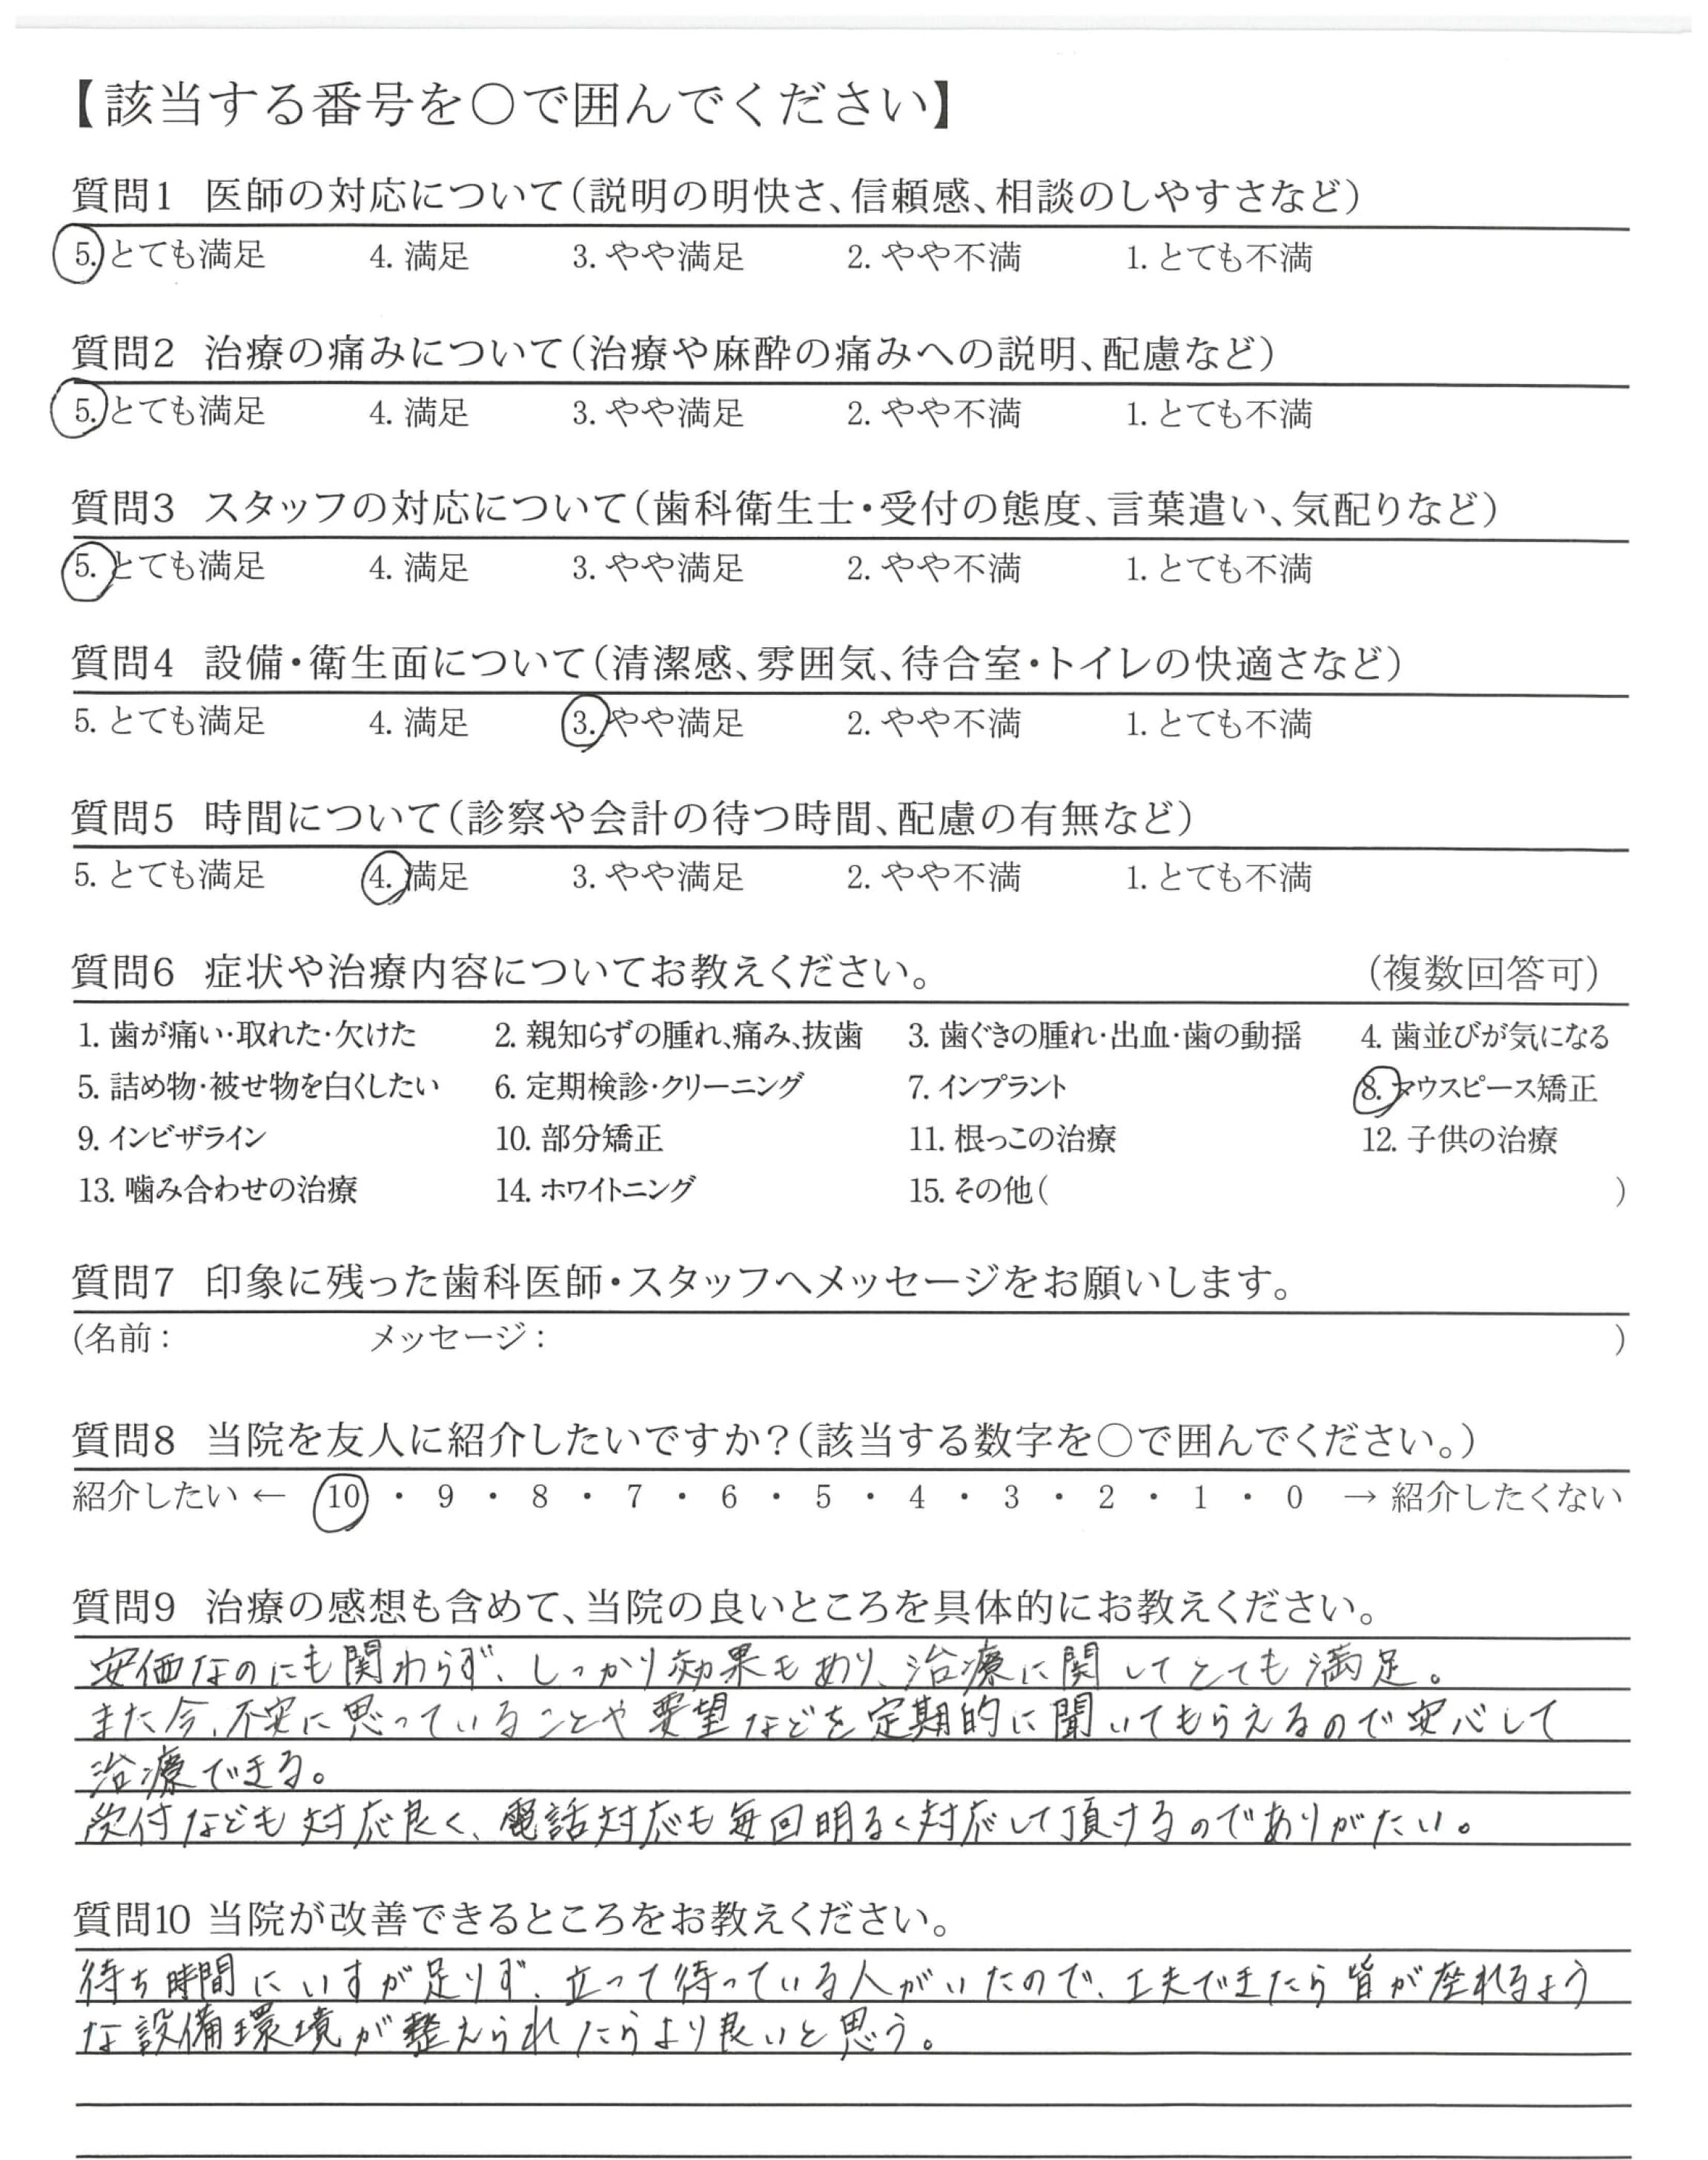 【該当する番号を○で囲んでください】
質問1 医師の対応について(説明の明快さ、信頼感、相談のしやすさなど)
5. とても満足 4. 満足 3. やや満足 2. やや不満 1. とても不満
質問2 治療の痛みについて(治療や麻酔の痛みへの説明、配慮など)
5. とても満足 4. 満足 3. やや満足 2. やや不満 1. とても不満
質問3 スタッフの対応について(歯科衛生士・受付の態度、言葉遣い、気配りなど)
5. とても満足 4. 満足 3. やや満足 2. やや不満 1. とても不満
質問4 設備・衛生面について(清潔感、雰囲気、待合室・トイレの快適さなど)
5. とても満足 4. 満足 3. やや満足 2. やや不満 1. とても不満
質問5 時間について(診察や会計の待つ時間、配慮の有無など)
5. とても満足 4. 満足 3. やや満足 2. やや不満 1. とても不満
質問6 症状や治療内容についてお教えください。 (複数回答可)
1. 歯が痛い・取れた・欠けた 2. 親知らずの腫れ、痛み、抜歯 3. 歯ぐきの腫れ・出血・歯の動揺 4. 歯並びが気になる
5. 詰め物・被せ物を白くしたい 6. 定期検診・クリーニング 7. インプラント 8. マウスピース矯正
9. インビザライン 10. 部分矯正 11. 根っこの治療 12. 子供の治療
13. 噛み合わせの治療 14. ホワイトニング 15. その他( )
質問7 印象に残った歯科医師・スタッフへメッセージをお願いします。
(名前: メッセージ: )
質問8 当院を友人に紹介したいですか?(該当する数字を○で囲んでください。)
紹介したい ← 10 ・ 9 ・ 8 ・ 7 ・ 6 ・ 5 ・ 4 ・ 3 ・ 2 ・ 1 ・ 0 → 紹介したくない
質問9 治療の感想も含めて、当院の良いところを具体的にお教えください。
安価なのにも関わらず、しっかり効果もあり、治療に関してとても満足。
また今、不安に思っていることや要望などを定期的に聞いてもらえるので安心して
治療できる。
受付なども対応良く、電話対応も毎回明るく対応して頂けるのでありがたい。
質問10 当院が改善できるところをお教えください。
待ち時間にいすが足りず、立って待っている人がいたので、工夫できたら皆が座れるよう
な設備環境が整えられたらより良いと思う。